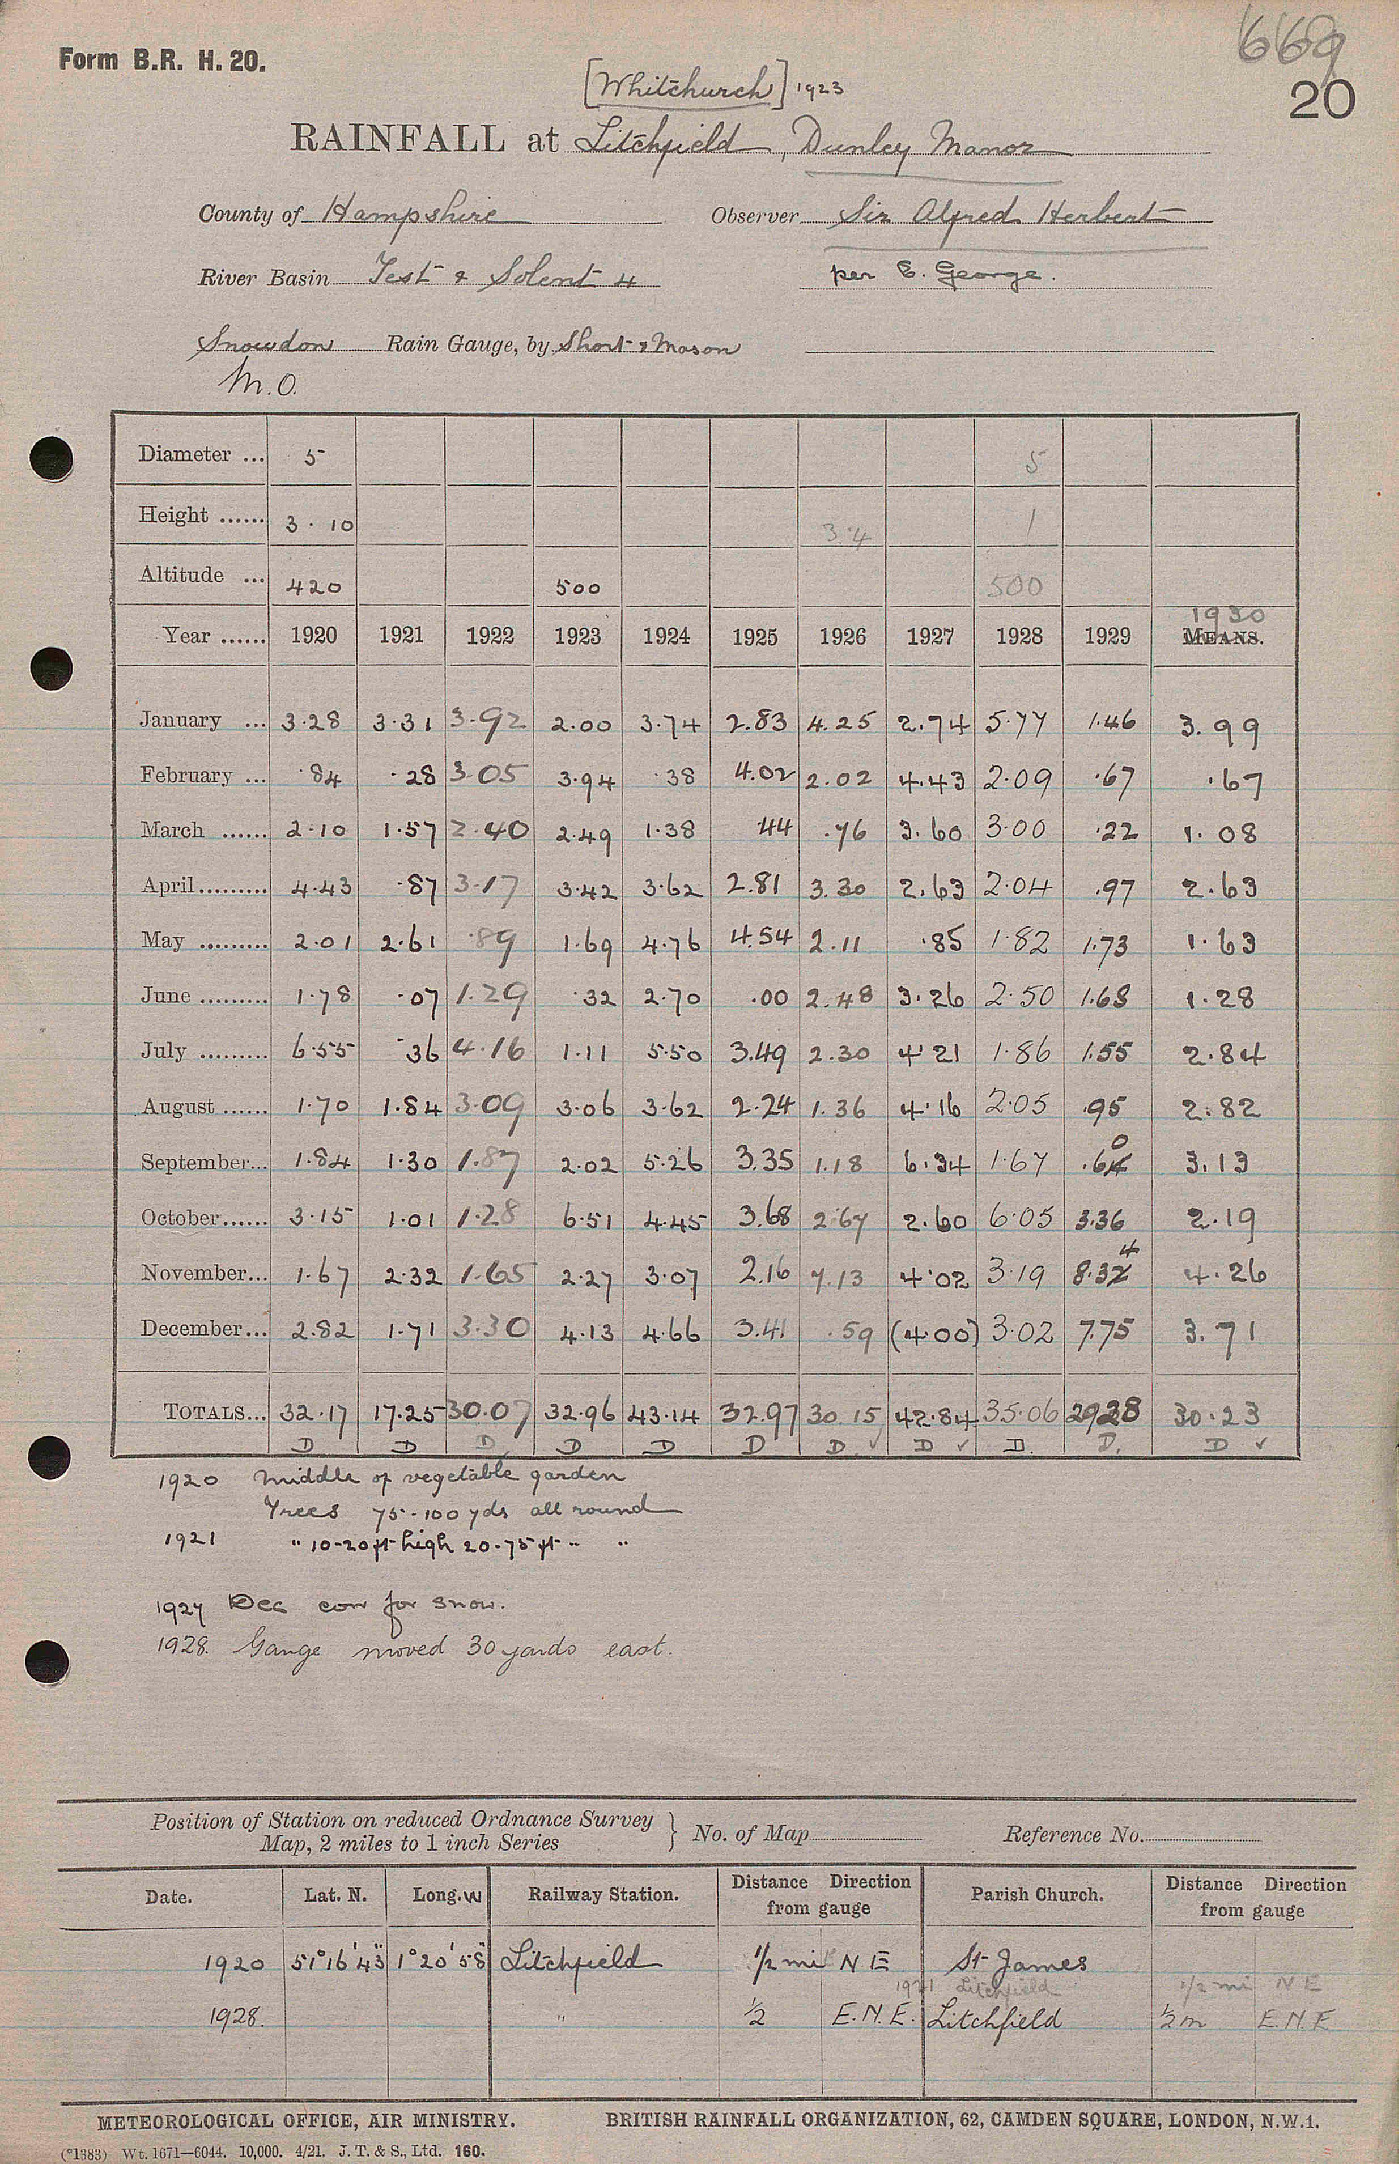 669
Form B.R. H. 20.
20
[Whitchurch] 1923
RAINFALL at Litchfield, Dunley Manor
County of Hampshire Observer Sir Alfred Herbert
River Basin Test & Solent 4 per E. George.
Snowdon Rain Gauge, by Short & Mason
M.O.
Diameter ... 5 5
Height ...... 3·10 3·4 1
Altitude ... 420 500 500
1930
Year ...... 1920 1921 1922 1923 1924 1925 1926 1927 1928 1929 MEANS.
January ... 3·28 3·31 3·92 2·00 3·74 2.83 4.25 2.74 5·77 1.46 3.99
February ... ·84 ·28 3·05 3·94 ·38 4.02 2.02 4.43 2·09 ·67 ·67
March ...... 2·10 1·57 2·40 2·49 1·38 44 .76 3.60 3·00 ·22 1.08
April ......... 4·43 ·87 3·17 3·42 3·62 2.81 3.30 2.63 2·04 .97 2.63
May ......... 2·01 2·61 ·89 1·69 4·76 4.54 2.11 ·85 1·82 1.73 1·63
June ......... 1·78 ·07 1·29 ·32 2·70 .00 2.48 3·26 2·50 1.68 1·28
July ......... 6·55 ·36 4·16 1·11 5·50 3.49 2.30 4·21 1·86 1.55 2·84
August ...... 1·70 1·84 3·09 3·06 3·62 2·24 1.36 4·16 2·05 .95 2.82
0
September... 1·84 1·30 1·87 2·02 5·26 3.35 1.18 6·34 1·67 .64 3.13
October...... 3·15 1·01 1·28 6·51 4·45 3.68 2·67 2.60 6·05 3.36 2·19
4
November... 1·67 2·32 1·65 2·27 3·07 2.16 7.13 4·02 3·19 8.32 4·26
December... 2·82 1·71 3·30 4·13 4·66 3.41 .59 (4·00) 3·02 7.75 3.71
TOTALS... 32·17 17·25 30·07 32·96 43·14 32.97 30.15 42·84 35·06 29.28 30·23
D D D. D D D D. ✓ D ✓ D. D. D ✓
1920 Middle of vegetable garden
Trees 75-100 yds all round
1921 " 10-20ft high 20-75ft " "
1927 Dec corr for snow.
1928. Gauge moved 30 yards east.
Position of Station on reduced Ordnance Survey
Map, 2 miles to 1 inch Series } No. of Map Reference No.
Date. Lat. N. Long. W Railway Station. Distance Direction from gauge Parish Church. Distance Direction from gauge
1920 51° 16' 43" 1° 20' 58" Litchfield 1/2 mi N E St James
1921 Litchfield 1/2 mi N E
1928. " 1/2 E.N.E. Litchfield 1/2 m E.N.E
METEOROLOGICAL OFFICE, AIR MINISTRY. BRITISH RAINFALL ORGANIZATION, 62, CAMDEN SQUARE, LONDON, N.W.1.
(*1383) Wt. 1671—6044. 10,000. 4/21. J. T. & S., Ltd. 160.